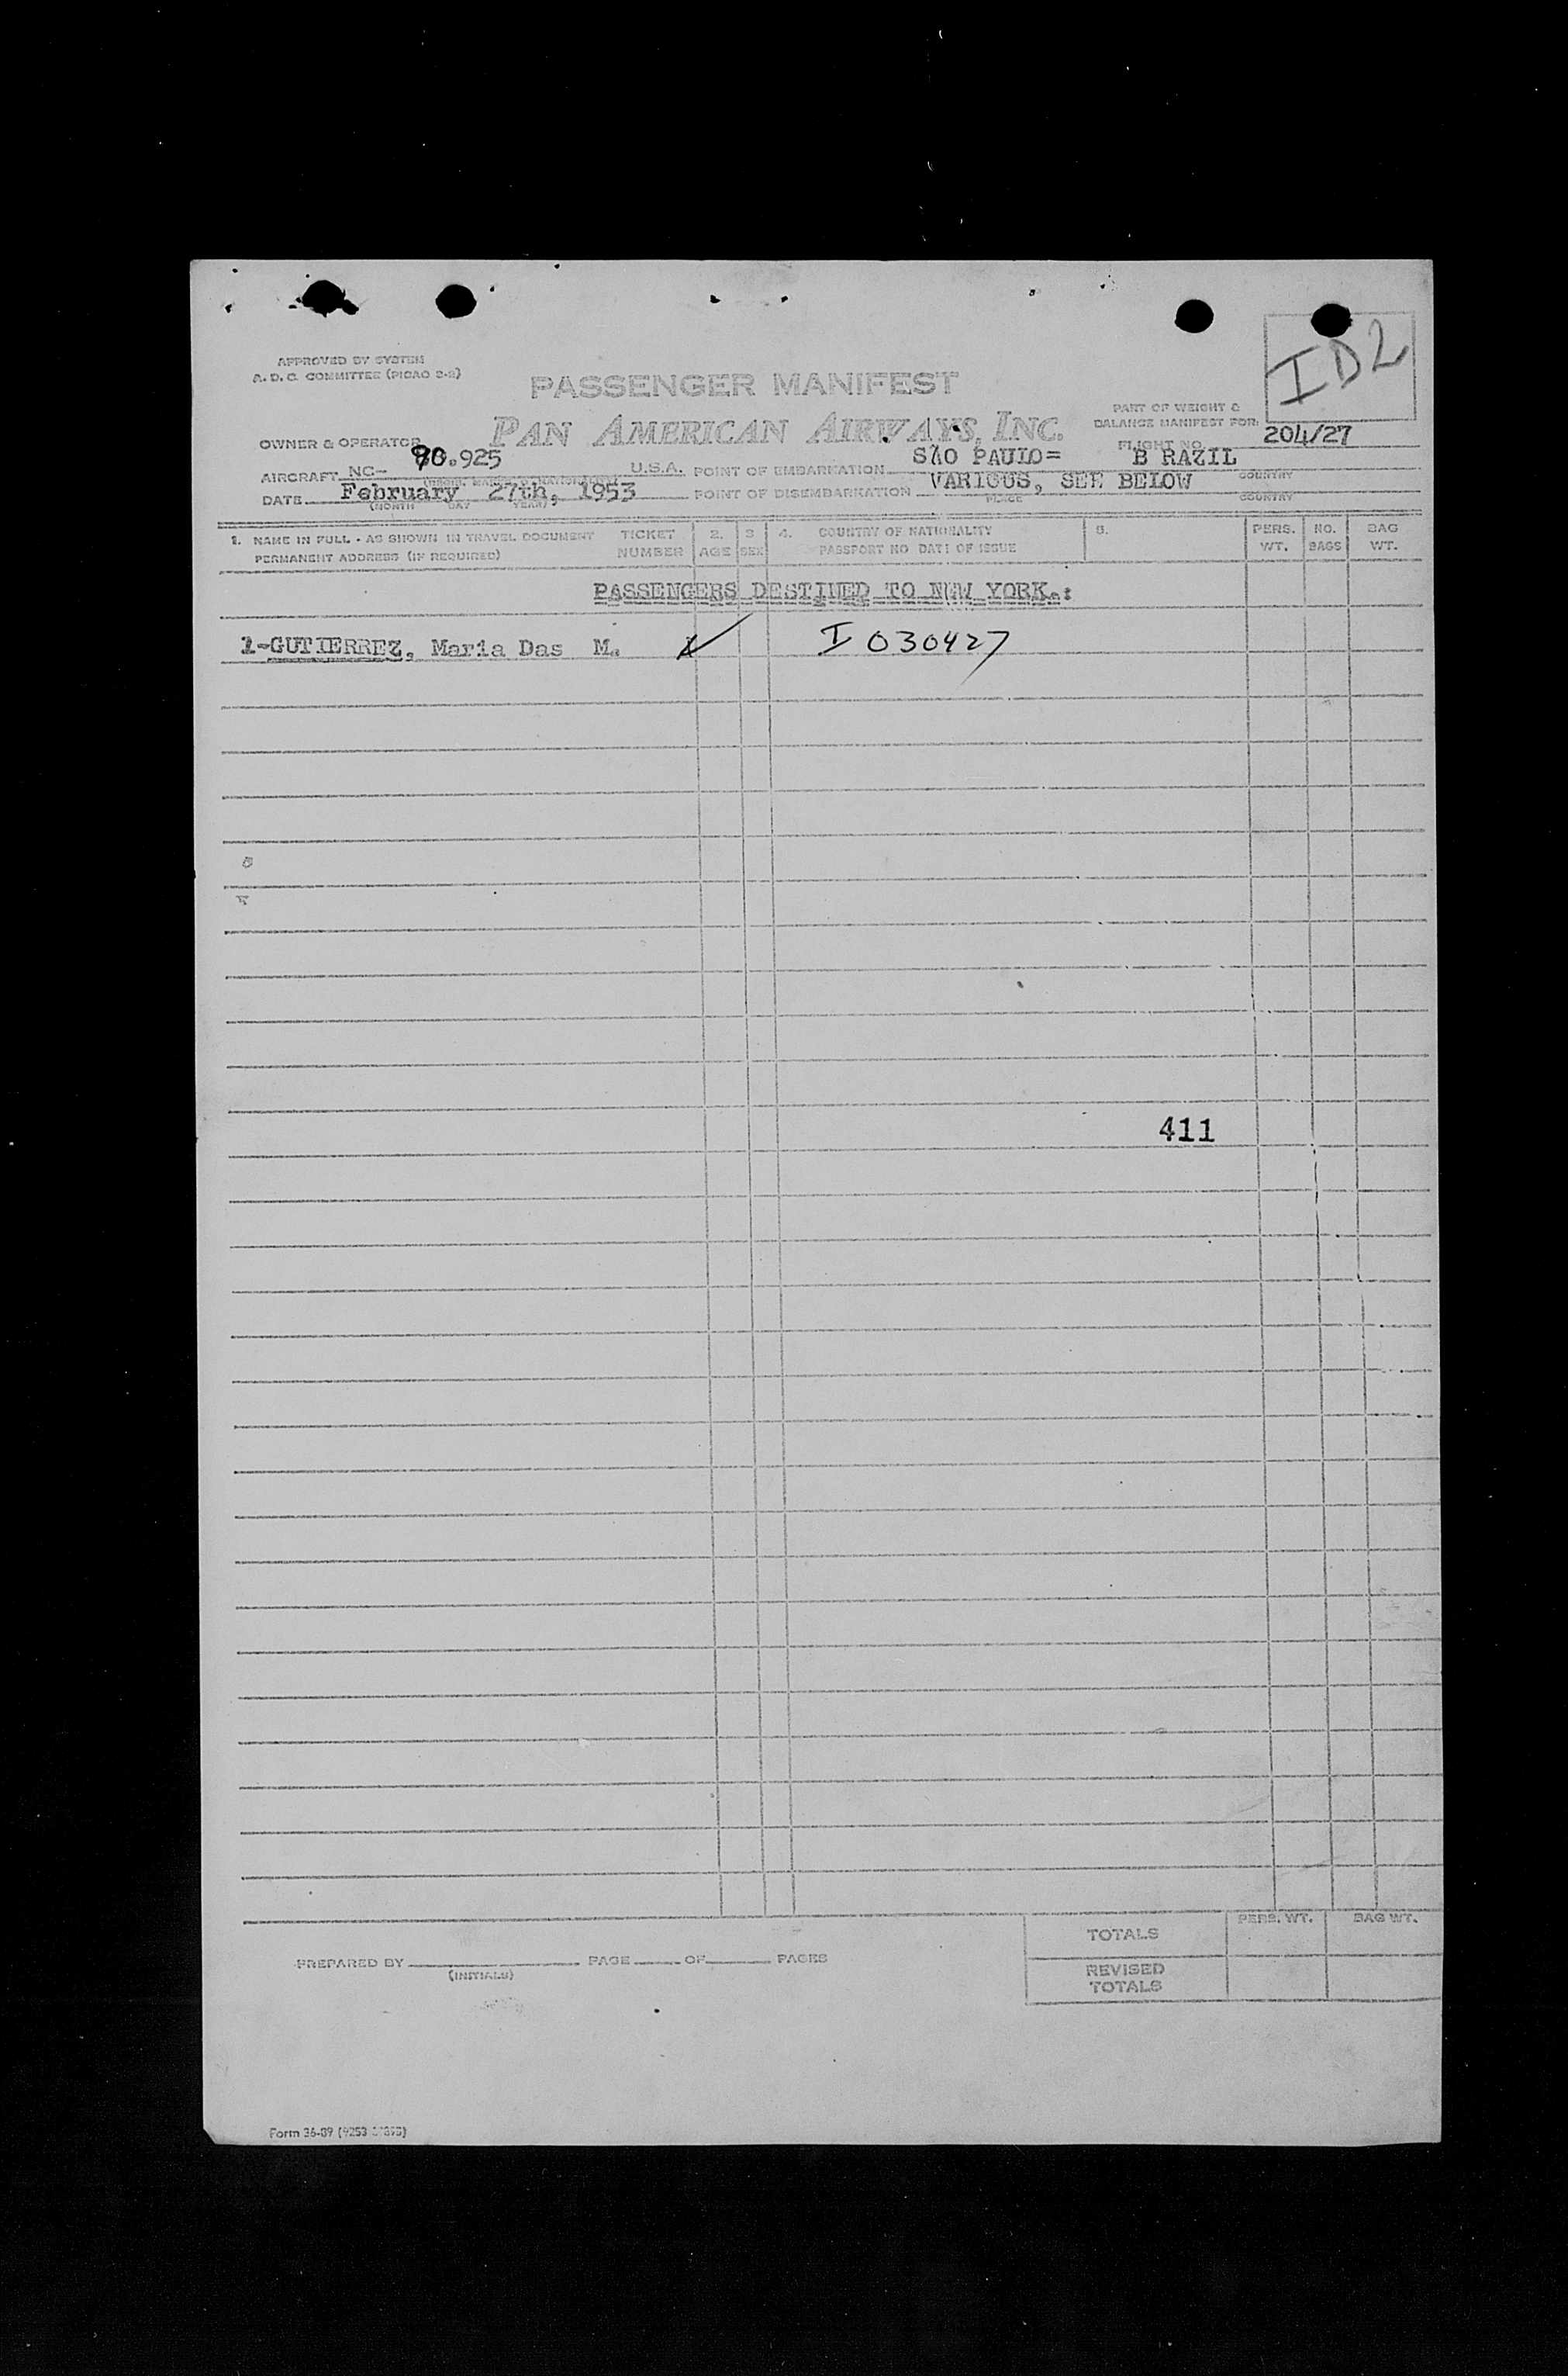 APPROVED BY SYSTEM
A. D. C. COMMITTEE (PICAO 2-2)
IDL
PASSENGER MANIFEST
PAN AMERICAN AIRWAYS, INC.
PART OF WEIGHT &
BALANCE MANIFEST FOR:
OWNER & OPERATOR
FLIGHT NO. 204/27
AIRCRAFT NC- 90.925 U.S.A. POINT OF EMBARKATION SÃO PAULO= B RAZIL
COUNTRY
DATE February 27th, 1953 POINT OF DISEMBARKATION VARIOUS, SEE BELOW
(MONTH DAY YEAR) PLACE COUNTRY
1. NAME IN FULL - AS SHOWN IN TRAVEL DOCUMENT TICKET 2. 3 4. COUNTRY OF NATIONALITY 5. PERS. NO. BAG
PERMANENT ADDRESS (IF REQUIRED) NUMBER AGE SEX PASSPORT NO DATE OF ISSUE WT. BAGS WT.
PASSENGERS DESTINED TO NEW YORK.:
1-GUTIERREZ, Maria Das M. I 030427
411
PERS. WT. BAG WT.
TOTALS
PREPARED BY PAGE OF PAGES
(INITIALS)
REVISED
TOTALS
Form 36-09 (9253